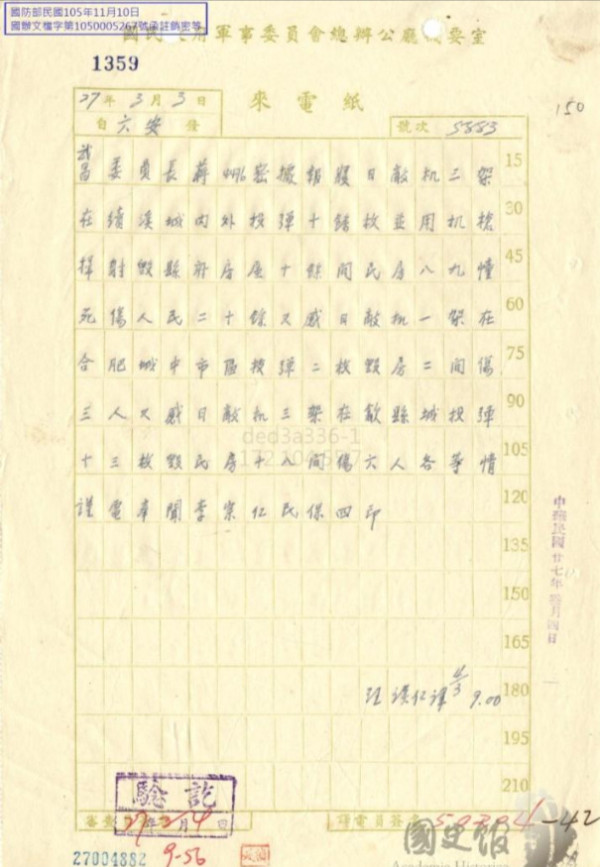 國防部民國105年11月10日
國辦文檔字第1050005267號函註銷密等
國民政府軍事委員會總辦公廳機要室
1359
27年3月3日
來電紙
150
自六安發
號次 5883
武昌委員長蔣 密據報 日敵机三架 15
在績溪城內外投彈十餘枚並用机槍 30
掃射毀縣府房屋十餘間民房八九幢 45
死傷人民二十餘又感日敵机一架在 60
合肥城中市區投彈二枚毀房二間傷 75
三人又感日敵机三架在歙縣城投彈 90
十三枚毀民房十八間傷六人各等情 105
謹電奉聞李宗仁民保四印 120
135
150
165
180
9.00
195
210
中華民國廿七年 月四日
驗訖
27年3月4日
27004882
9-56
國史館
Academia Historica